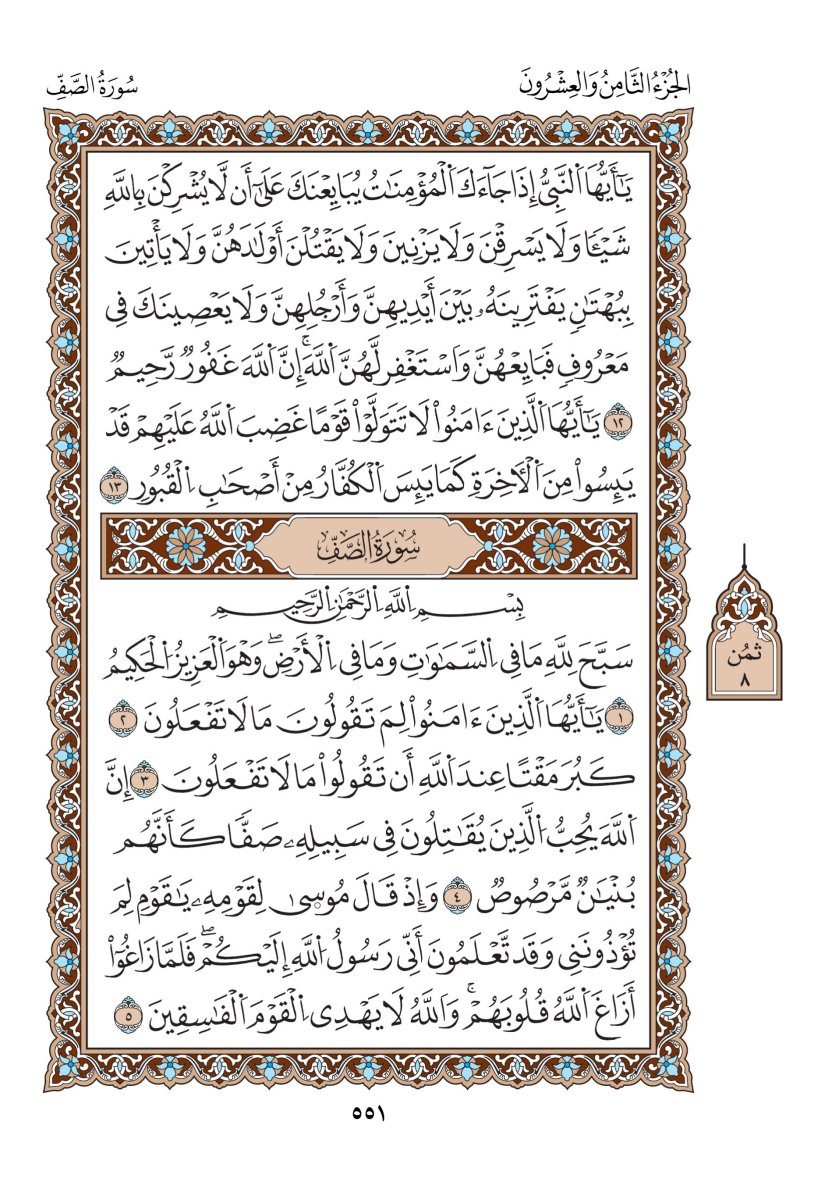 الجُزْءُ الثَّامِنُ وَالعِشْرُونَ
سُورَةُ الصَّفِّ
يَـٰٓأَيُّهَا اَ۬لنَّبِيُّ إِذَا جَآءَكَ اَ۬لْمُؤْمِنَـٰتُ يُبَايِعْنَكَ عَلَىٰٓ أَن لَّا يُشْرِكْنَ بِاللَّهِ
شَيْـًٔا وَلَا يَسْرِقْنَ وَلَا يَزْنِينَ وَلَا يَقْتُلْنَ أَوْلَـٰدَهُنَّ وَلَا يَأْتِينَ
بِبُهْتَـٰنٍ يَفْتَرِينَهُۥ بَيْنَ أَيْدِيهِنَّ وَأَرْجُلِهِنَّ وَلَا يَعْصِينَكَ فِى
مَعْرُوفٍ فَبَايِعْهُنَّ وَاسْتَغْفِر لَّهُنَّ اَ۬للَّهَۚ إِنَّ اَ۬للَّهَ غَفُورٌ رَّحِيمٌ
١٢ يَـٰٓأَيُّهَا اَ۬لَّذِينَ ءَامَنُوا۟ لَا تَتَوَلَّوْا۟ قَوْمًا غَضِبَ اَ۬للَّهُ عَلَيْهِمْ قَدْ
يَئِسُوا۟ مِنَ اَ۬لْأَخِرَةِ كَمَا يَئِسَ اَ۬لْكُفَّارُ مِنْ أَصْحَـٰبِ اِ۬لْقُبُورِ ١٣
سُورَةُ الصَّفِّ
بِسْمِ اِ۬للَّهِ اِ۬لرَّحْمَـٰنِ اِ۬لرَّحِيمِ
سَبَّحَ لِلَّهِ مَا فِى اِ۬لسَّمَـٰوَٰتِ وَمَا فِى اِ۬لْأَرْضِۖ وَهْوَ اَ۬لْعَزِيزُ اُ۬لْحَكِيمُ
ثُمُن
٨
١ يَـٰٓأَيُّهَا اَ۬لَّذِينَ ءَامَنُوا۟ لِمَ تَقُولُونَ مَا لَا تَفْعَلُونَ ٢
كَبُرَ مَقْتًا عِندَ اَ۬للَّهِ أَن تَقُولُوا۟ مَا لَا تَفْعَلُونَ ٣ إِنَّ
اَ۬للَّهَ يُحِبُّ اُ۬لَّذِينَ يُقَـٰتِلُونَ فِى سَبِيلِهِۦ صَفًّا كَأَنَّهُم
بُنْيَـٰنٌ مَّرْصُوصٌ ٤ وَإِذْ قَالَ مُوسىٰ لِقَوْمِهِۦ يَـٰقَوْمِ لِمَ
تُؤْذُونَنِى وَقَد تَّعْلَمُونَ أَنِّى رَسُولُ اُ۬للَّهِ إِلَيْكُمْۖ فَلَمَّا زَاغُوٓا۟
أَزَاغَ اَ۬للَّهُ قُلُوبَهُمْۚ وَاللَّهُ لَا يَهْدِى اِ۬لْقَوْمَ اَ۬لْفَـٰسِقِينَ ٥
٥٥١